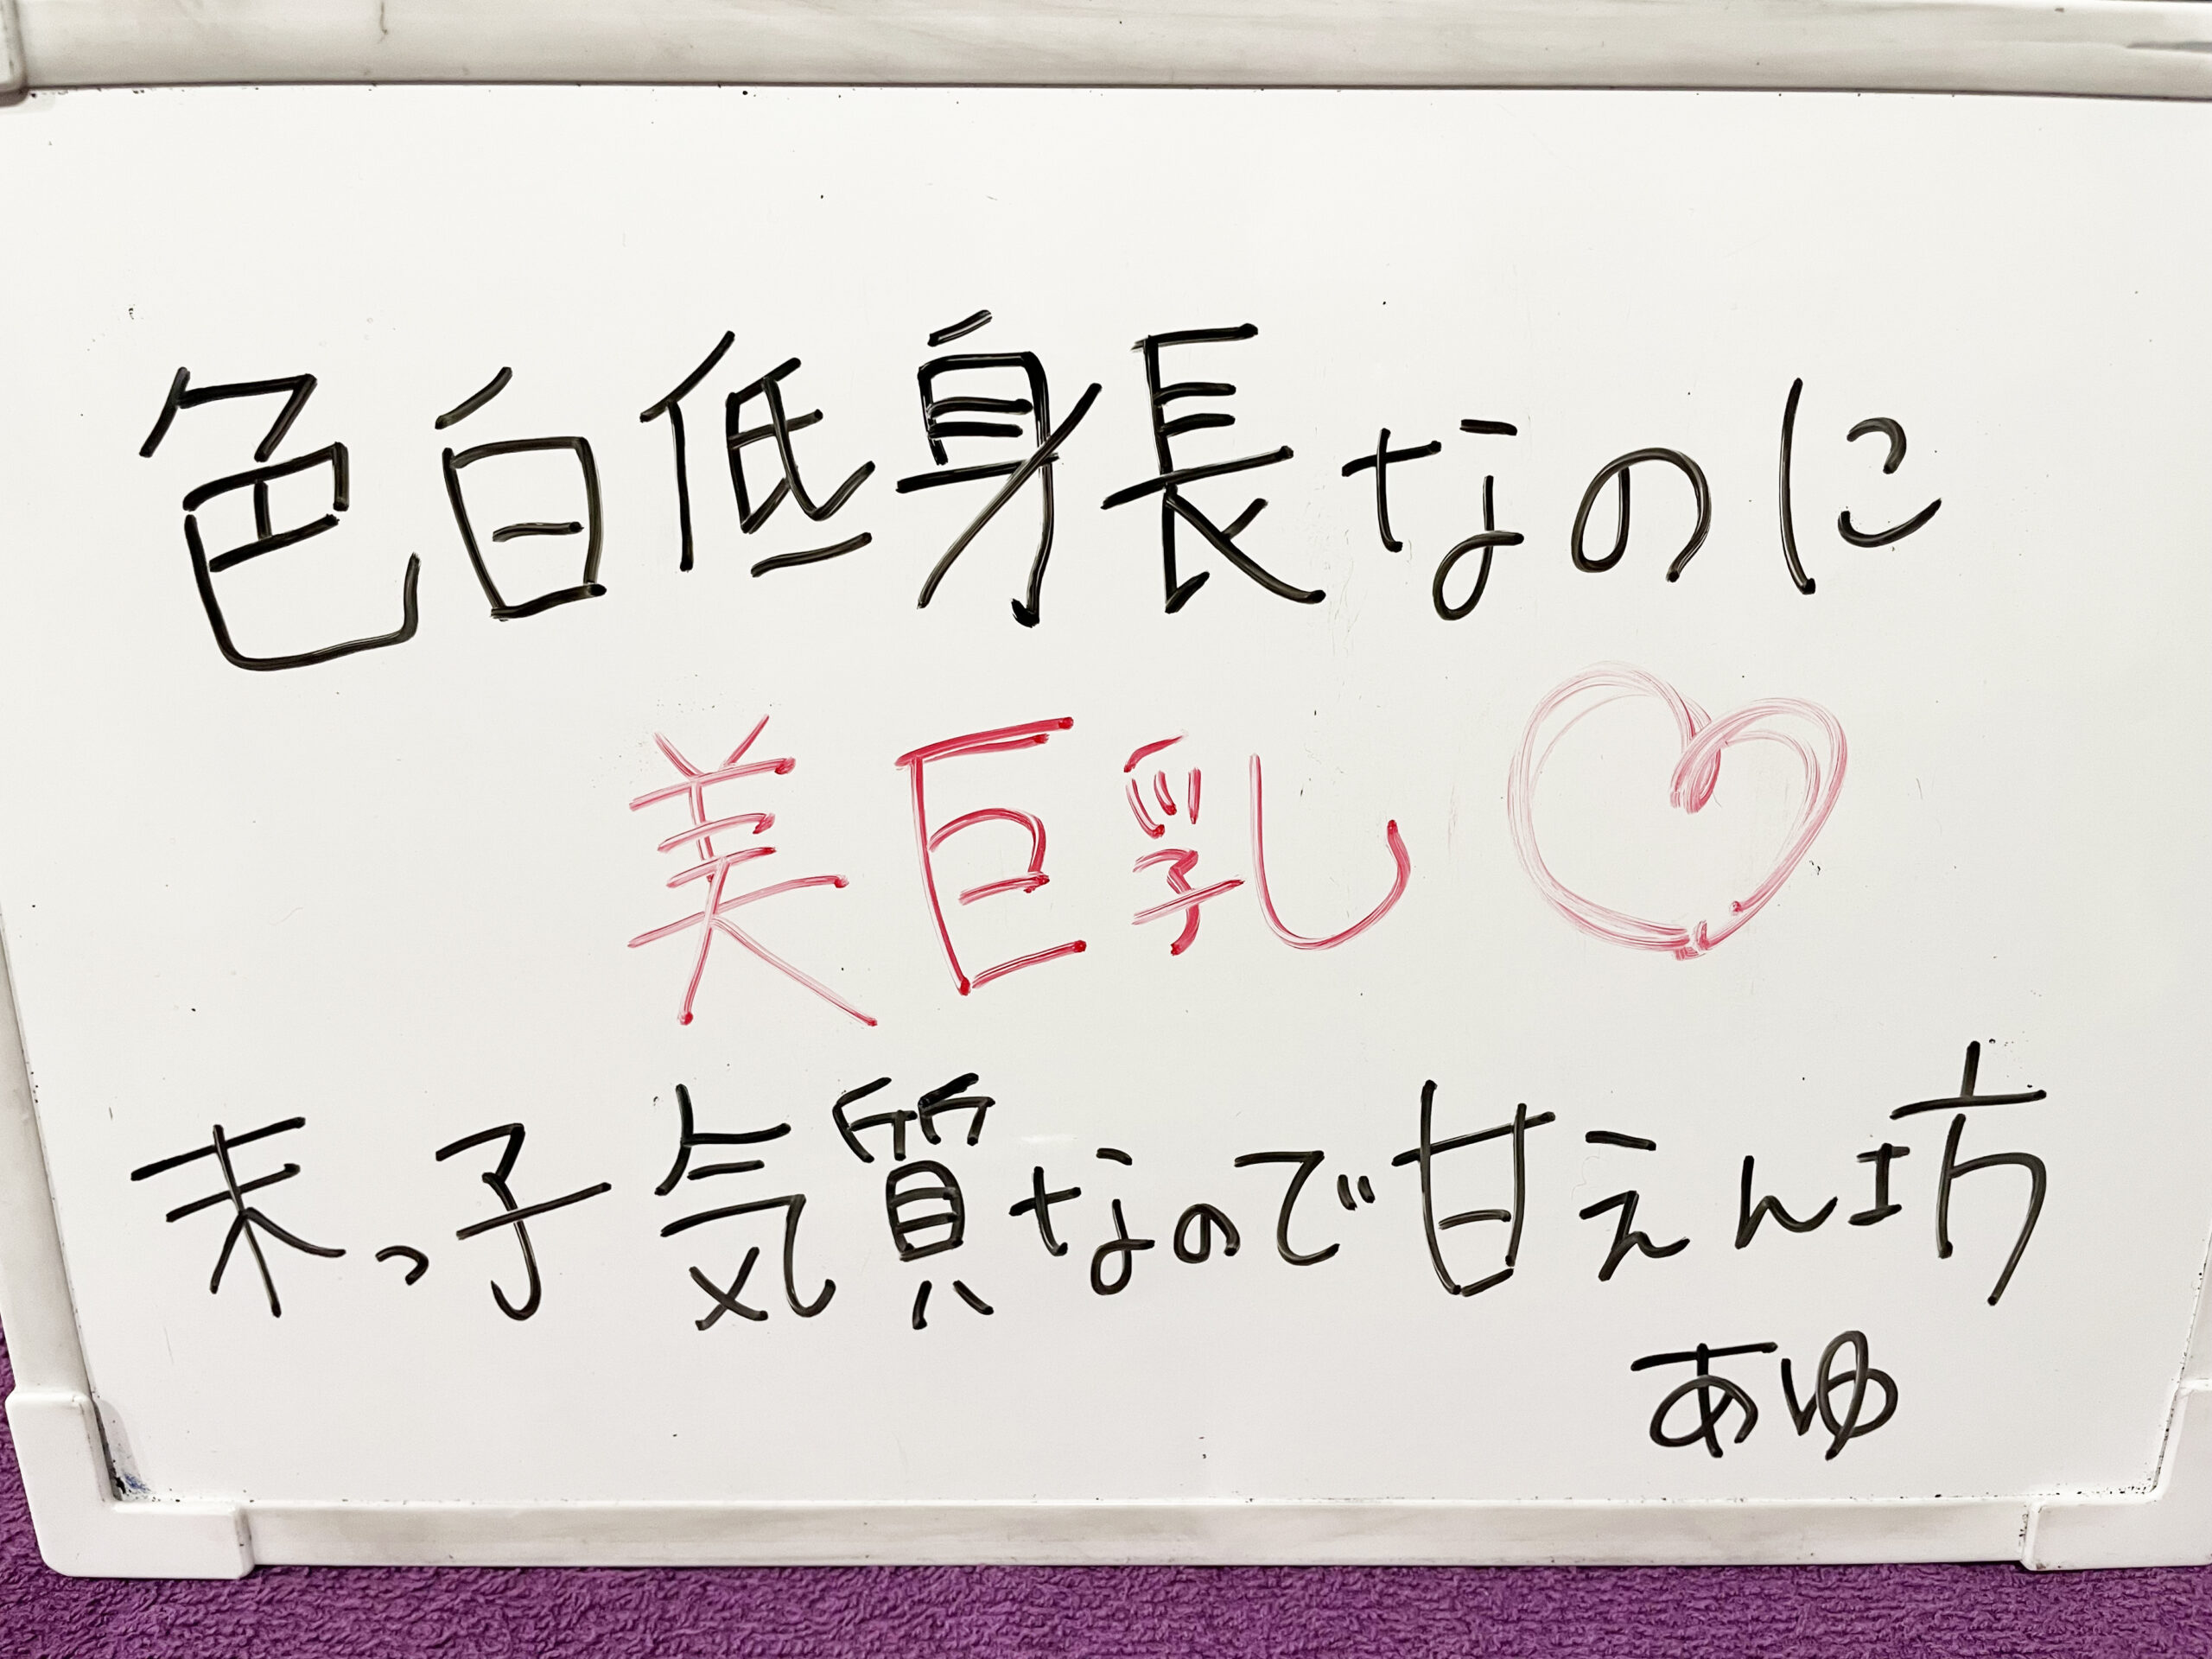 色白低身長なのに
美巨乳♡
末っ子気質なので甘えん坊
あゆ